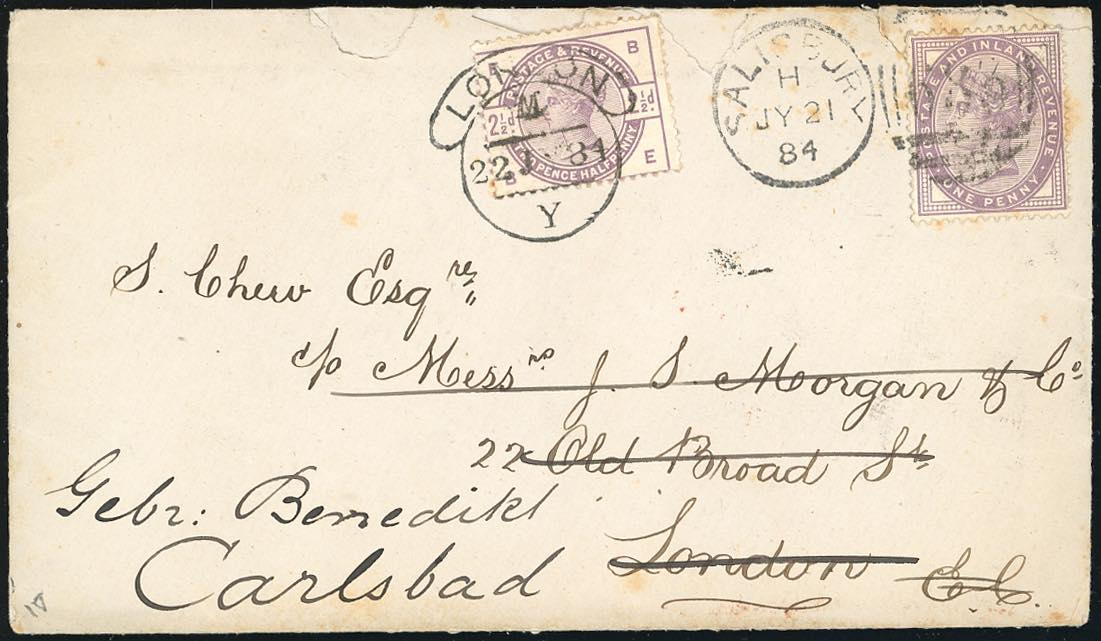 LONDON
M
22 JY 84
Y
B
POSTAGE & REVENUE
2½d. 2½d.
TWO PENCE HALFPENNY
B E
SALISBURY
H
JY 21
84
POSTAGE AND INLAND REVENUE
ONE PENNY
S. Chew Esqre,,
c/o Messrs J. S. Morgan & Co
22 Old Broad St
London E.C.
Gebr: Benedikt
Carlsbad